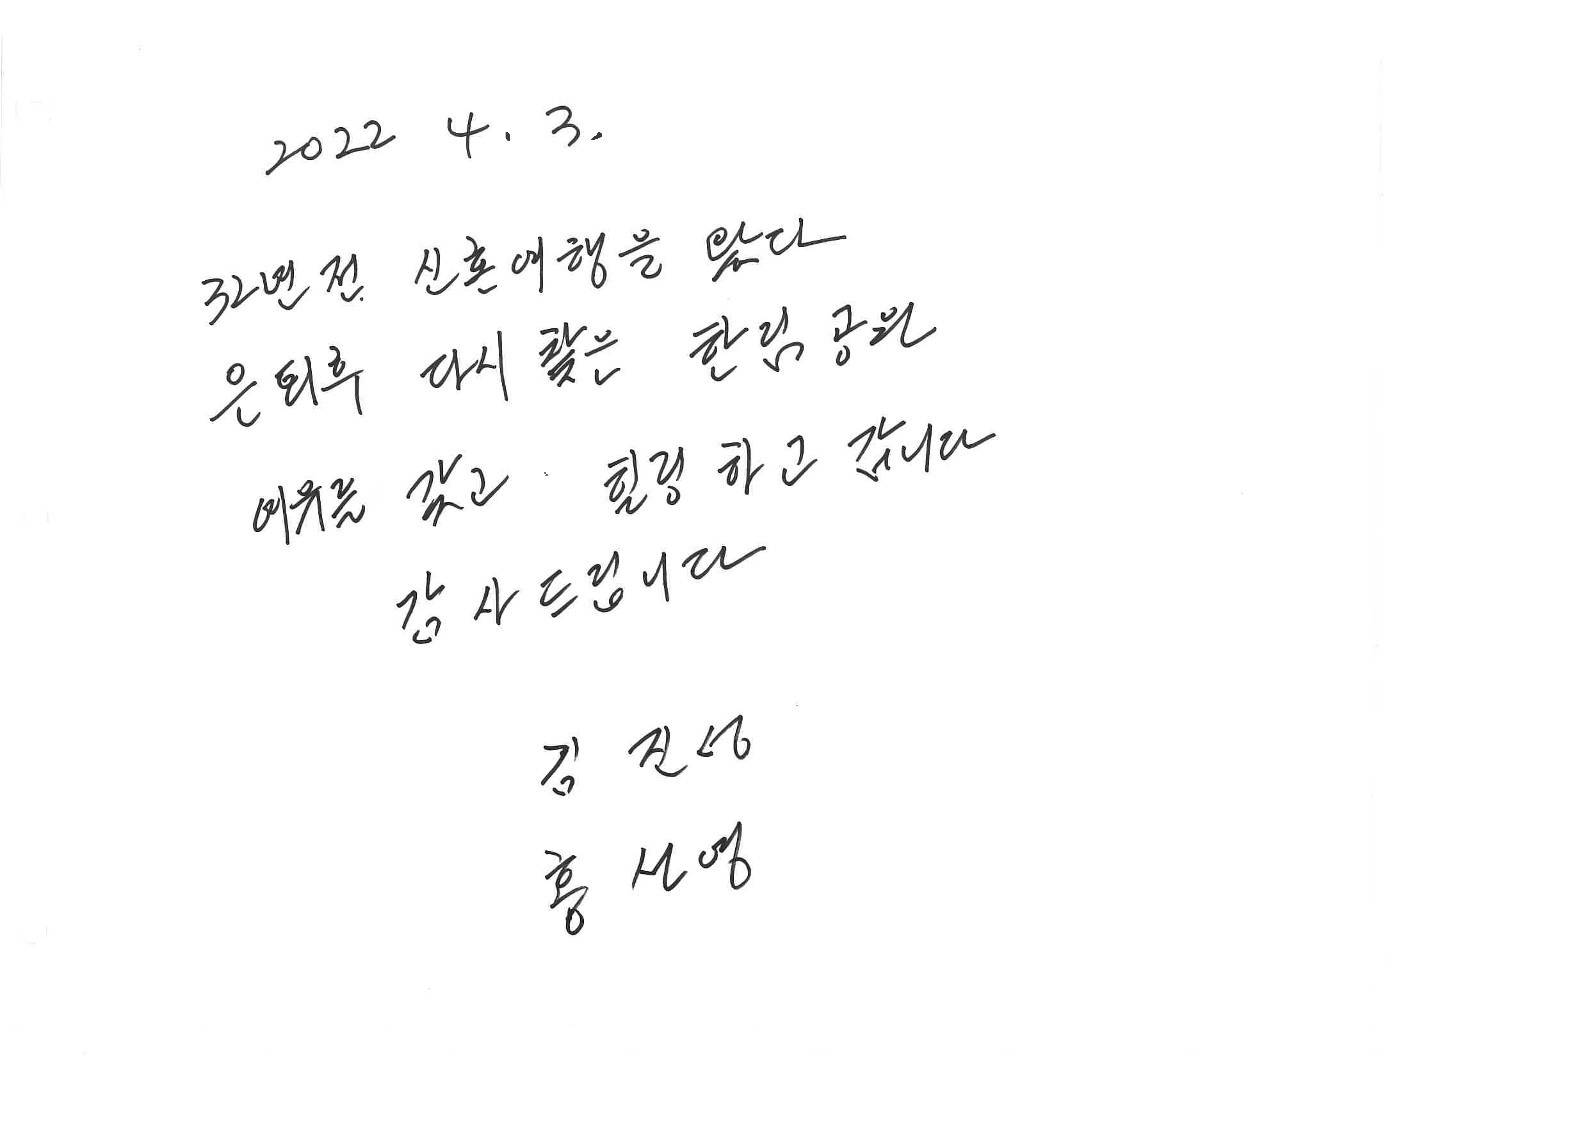 2022 4. 3.
32년전 신혼여행을 왔다
은퇴후 다시 찾은 한림공원
여유를 갖고 힐링하고 갑니다
감사드립니다
김 진성
홍 선영